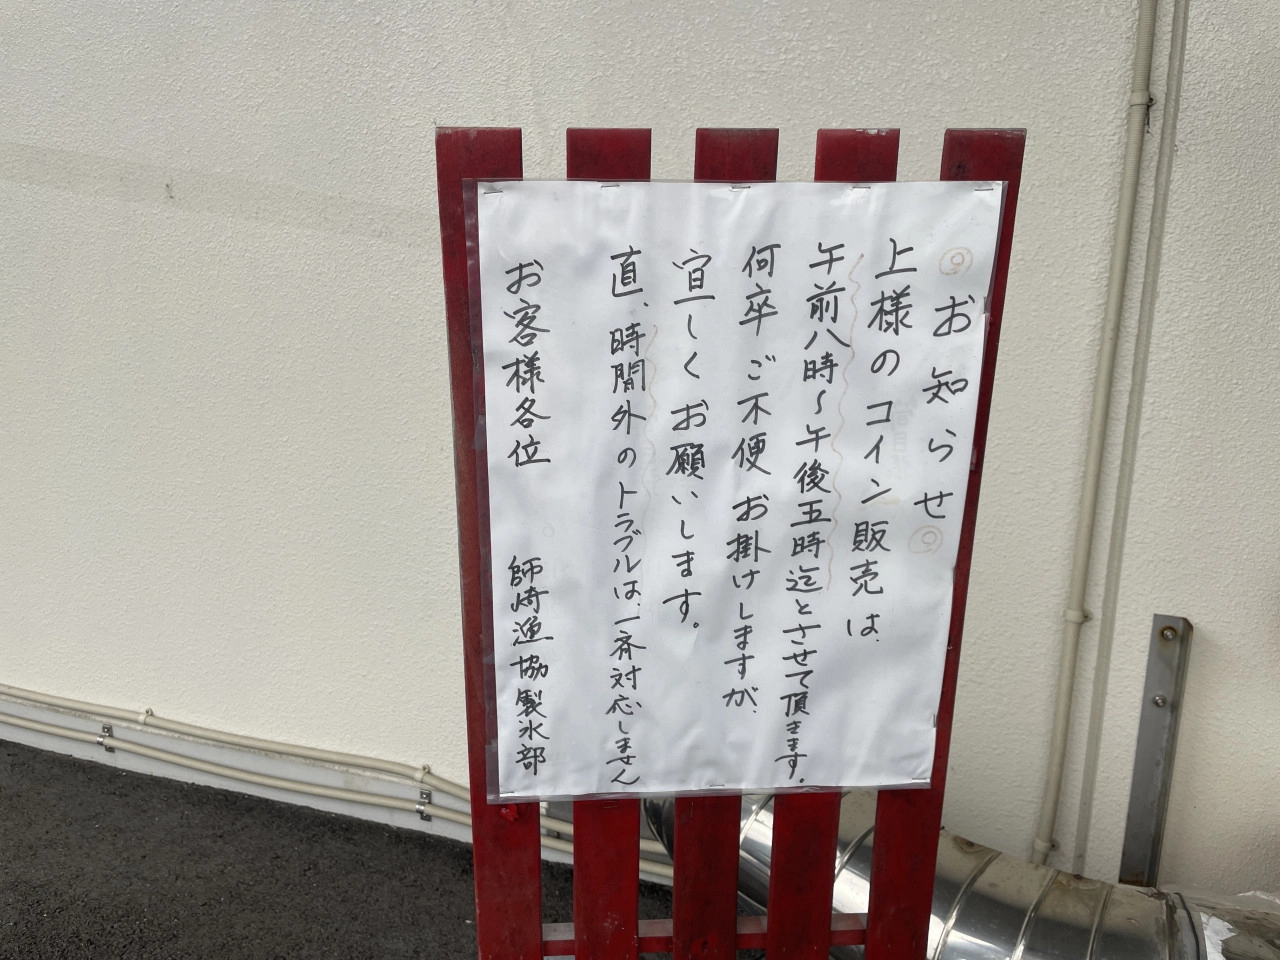 ◎お知らせ◎
上様のコイン販売は、
午前八時～午後五時迄とさせて頂きます。
何卒ご不便お掛けしますが、
宜しくお願いします。
直、時間外のトラブルは、一斉対応しません
お客様各位
師崎漁協製氷部